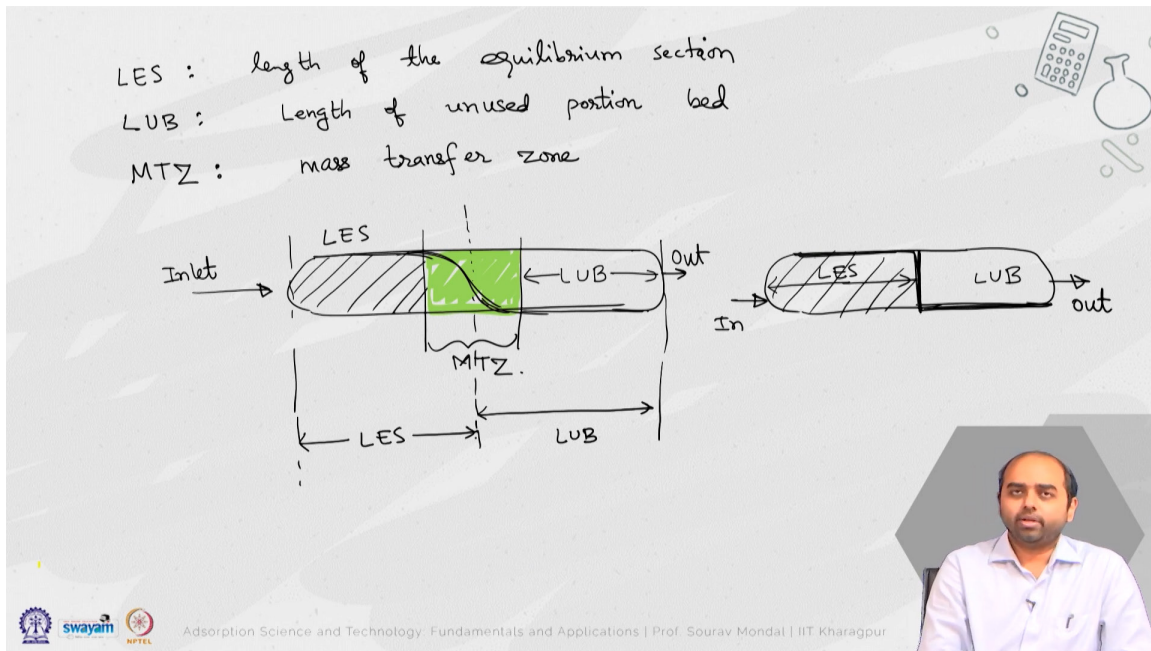 LES : length of the equilibrium section
LUB : Length of unused portion bed
MTZ : mass transfer zone
LES
Inlet
LUB
Out
MTZ.
LES
LUB
LES
LUB
In
out
swayam
NPTEL
Adsorption Science and Technology: Fundamentals and Applications | Prof. Sourav Mondal | IIT Kharagpur